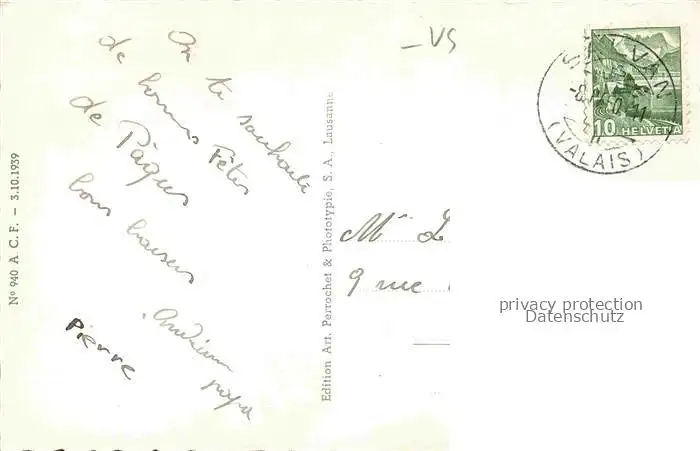 On te souhaite
de bonnes Fêtes
de Pâques
bons baisers
papa
Pierre
Nº 940 A. C. F. — 3.10.1939
Edition Art. Perrochet & Phototypie, S. A., Lausanne
—VS
SALVAN
(VALAIS)
10 HELVETIA
Mr
9 rue
privacy protection
Datenschutz